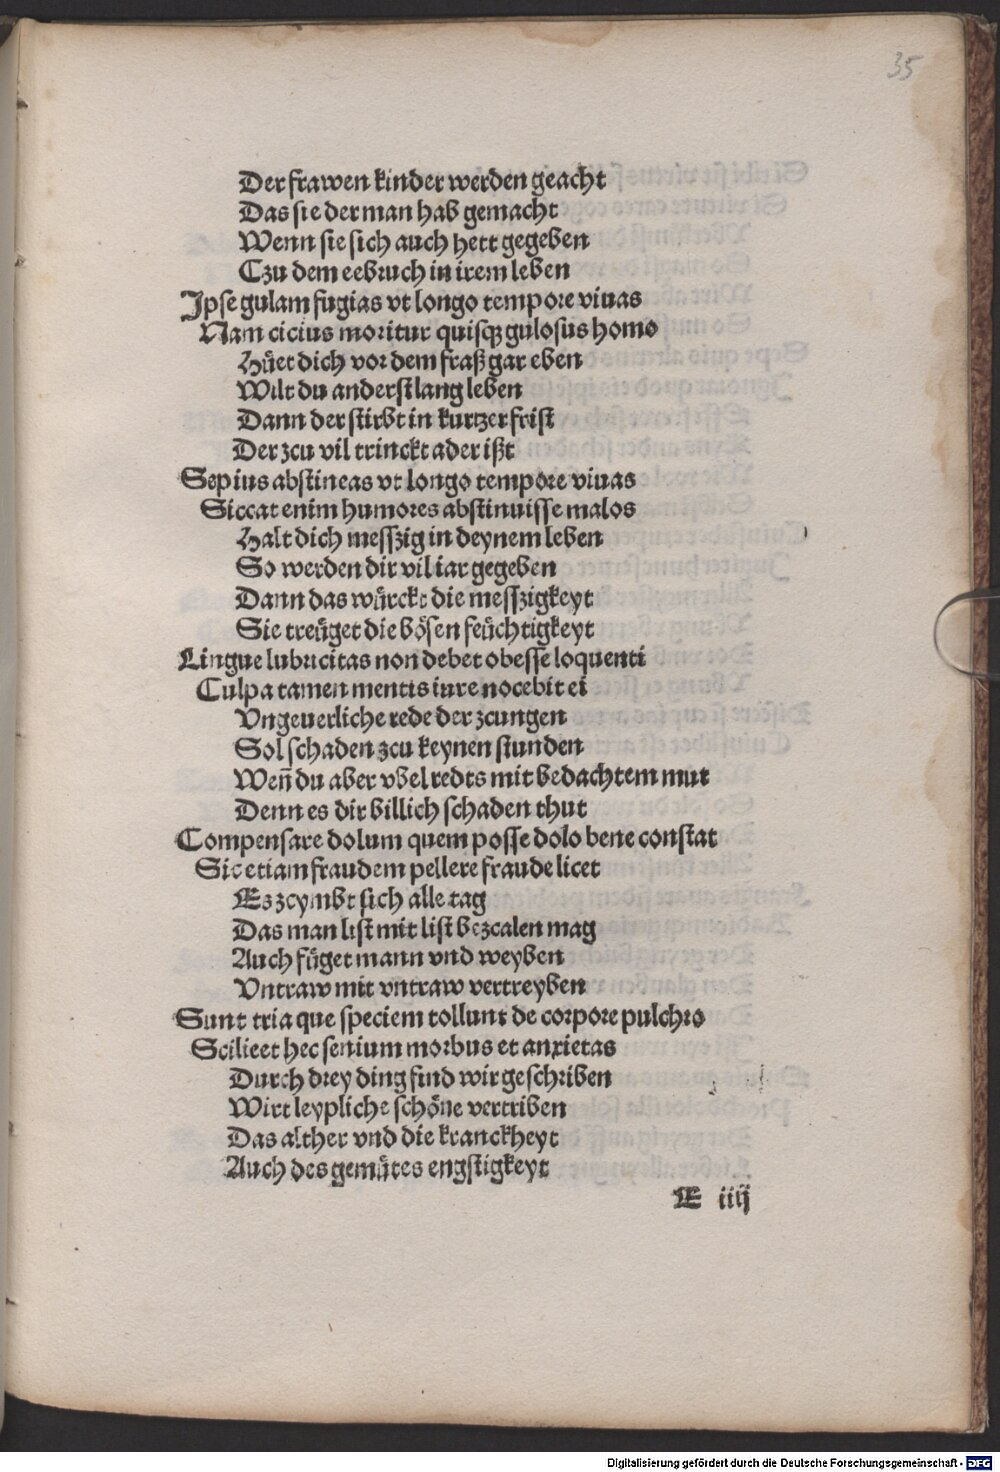 35
Der frawen kinder werden geacht
Das sie der man hab gemacht
Wenn sie sich auch hett gegeben
Czu dem eebruch in irem leben
Ipse gulam fugias vt longo tempore viuas
Nam cicius moritur quisqꝫ gulosus homo
Hüet dich vor dem fraß gar eben
Wilt du anderst lang leben
Dann der stirbt in kurtzer frist
Der zcu vil trinckt ader ißt
Sepius abstineas vt longo tempore viuas
Siccat enim humores abstinuisse malos
Halt dich messzig in deynem leben
So werden dir vil iar gegeben
Dann das würckt die messzigkeyt
Sie treüget die bösen feüchtigkeyt
Lingue lubricitas non debet obesse loquenti
Culpa tamen mentis iure nocebit ei
Vngeuerliche rede der zcungen
Sol schaden zcu keynen stunden
Weñ du aber vbel redts mit bedachtem mut
Denn es dir billich schaden thut
Compensare dolum quem posse dolo bene constat
Sic etiam fraudem pellere fraude licet
Es zcymbt sich alle tag
Das man list mit list bezcalen mag
Auch füget mann vnd weyben
Vntraw mit vntraw vertreyben
Sunt tria que speciem tollunt de corpore pulchro
Scilicet hec senium morbus et anxietas
Durch drey ding find wir geschriben
Wirt leypliche schöne vertriben
Das alther vnd die kranckheyt
Auch des gemütes engstigkeyt
E iiij
Digitalisierung gefördert durch die Deutsche Forschungsgemeinschaft - DFG